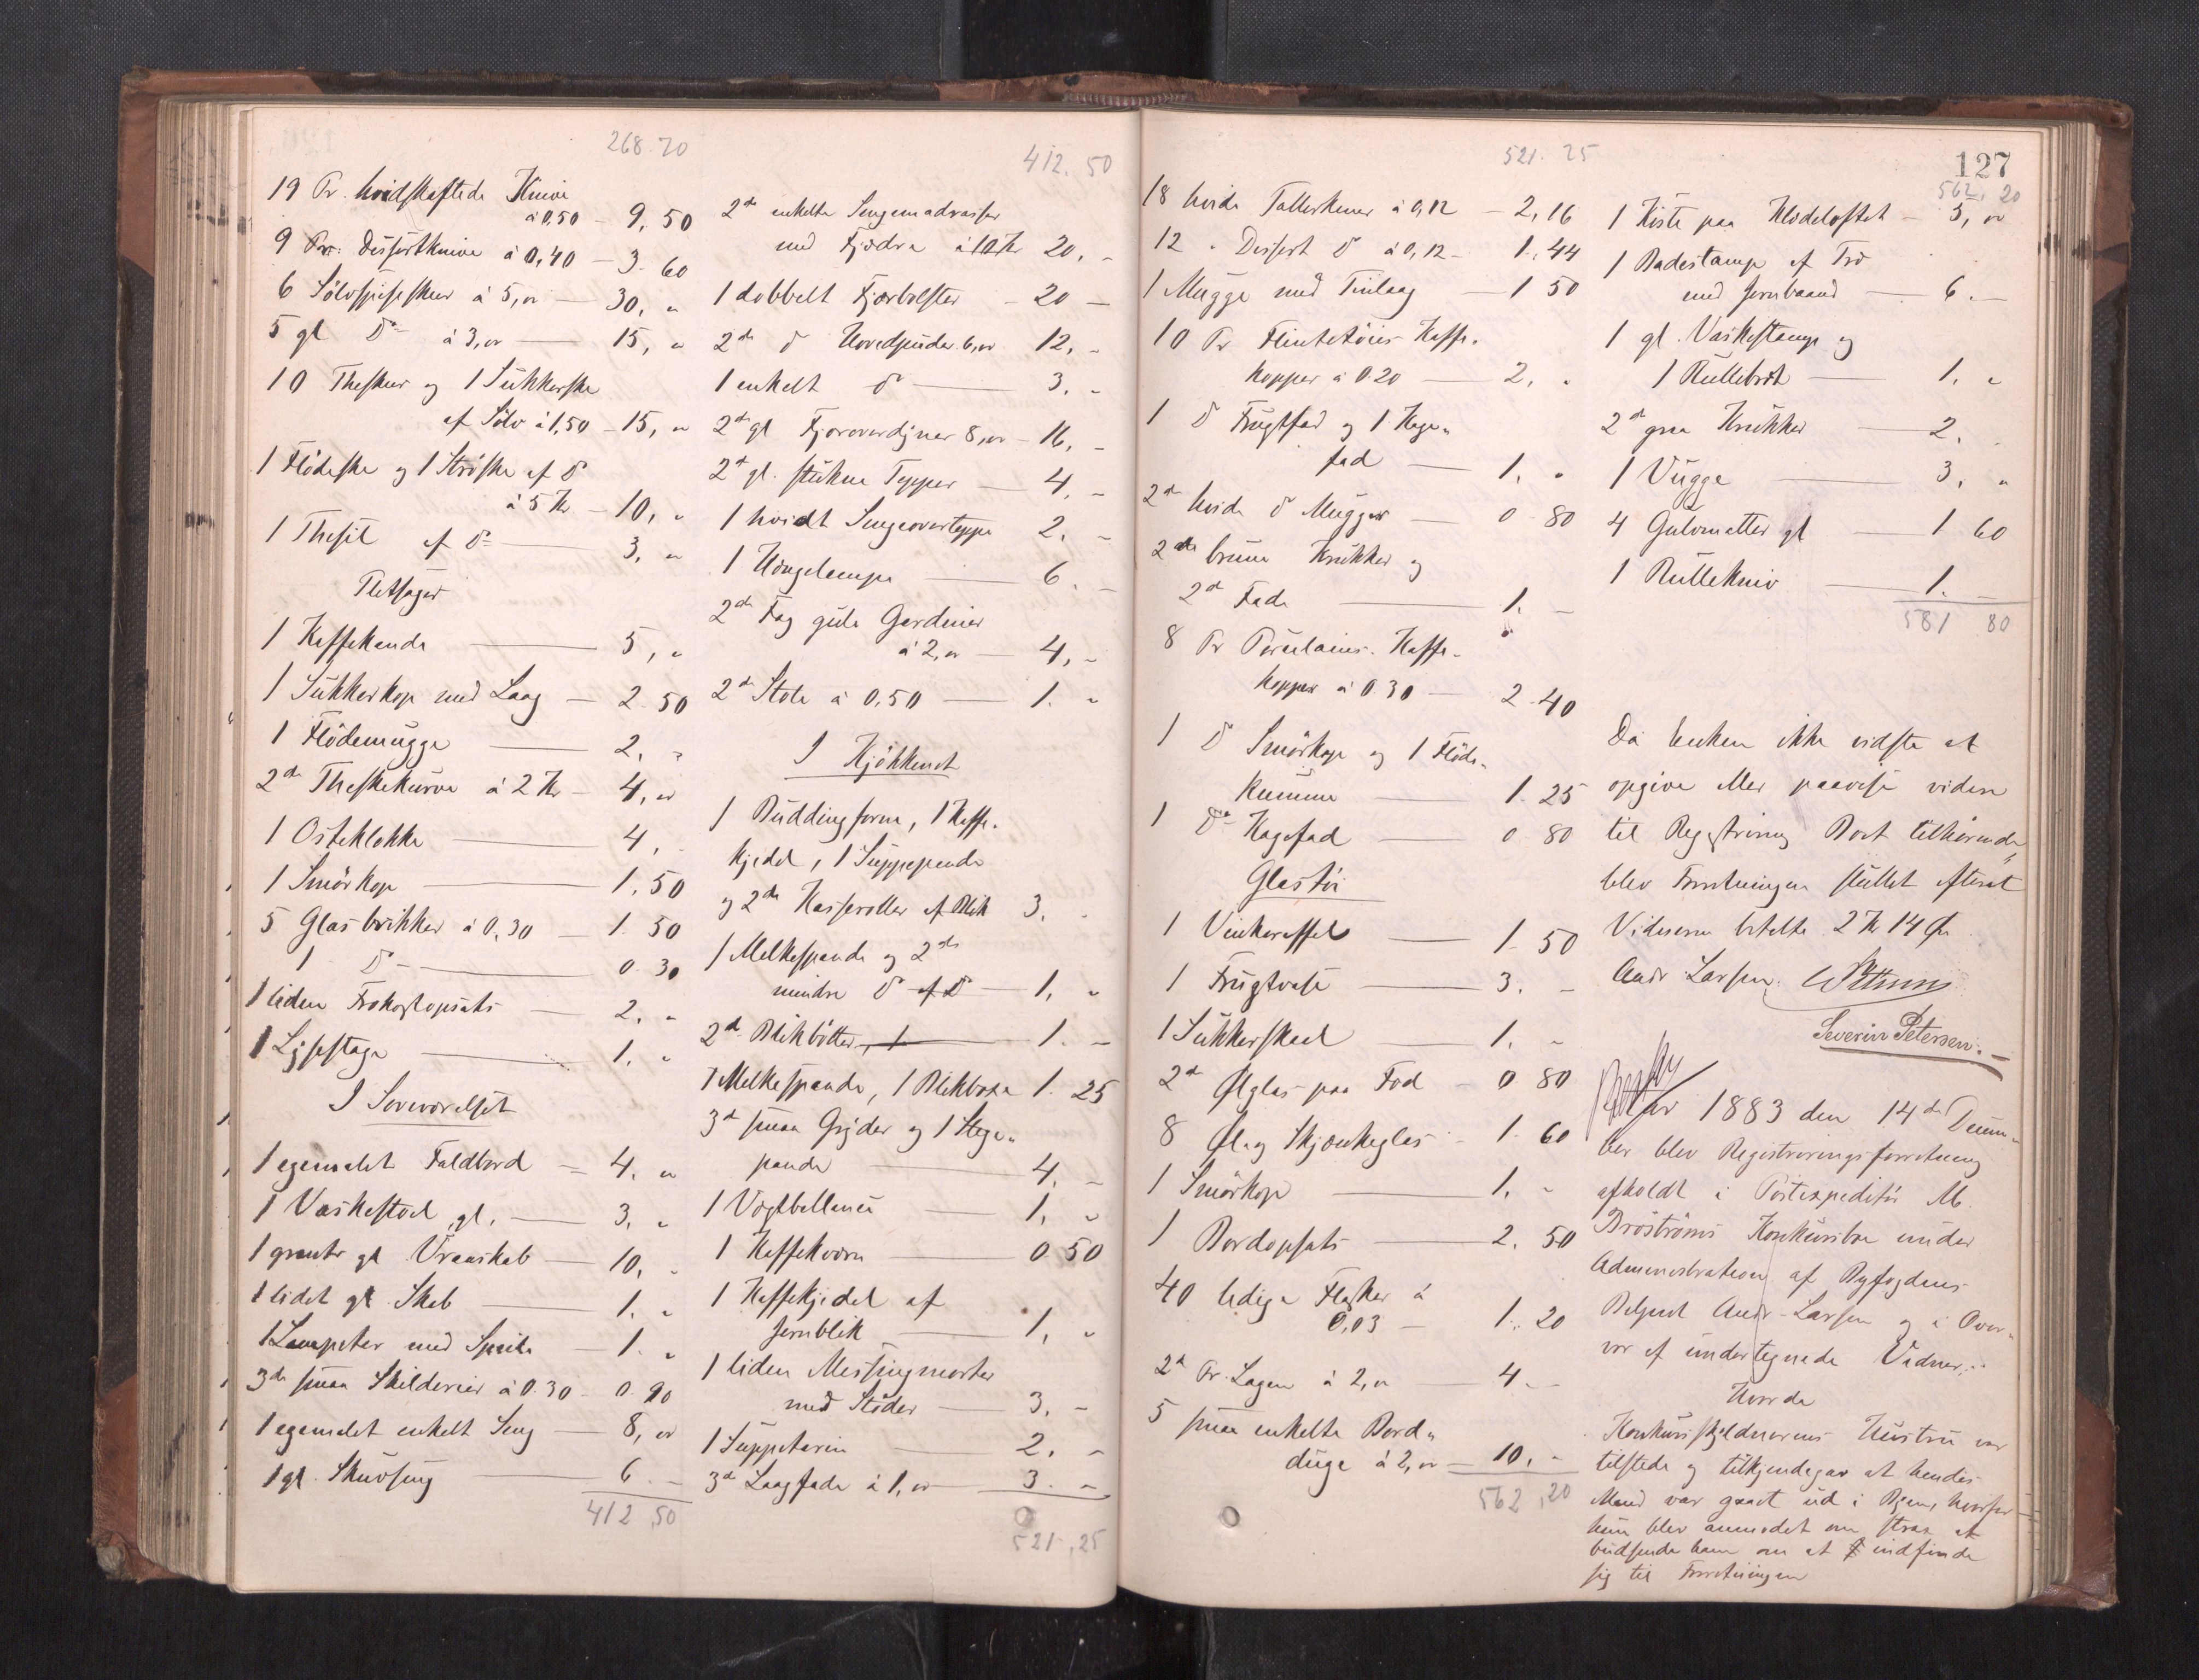 268.70
19 Pr. hvidskaftede Knive
à 0,50 — 9,50
9 Pr. Dessertknive à 0,40 — 3.60
6 Sölvspiseskeer à 5,00 — 30, "
5 gl Do à 3,00 — 15, "
10 Theskeer og 1 Sukkerske
af Sölv à 1,50 — 15, "
1 Flödeske og 1 Ströske af Do
à 5 Kr — 10, "
1 Thesil af Do — 3, "
Pletsager
1 Kaffekande — 5, "
1 Sukkerkop med Laag — 2.50
1 Flödemugge — 2, "
2de Theskekurve à 2 Kr — 4, "
1 Osteklokke — 4, "
1 Smörkop — 1,50
5 Glasbrikker à 0,30 — 1.50
1 Do — 0.30
1 liden Frokostopsats — 2. "
1 Lysestage — 1. "
I Soveværelset
1 egemalet Faldbord — 4. "
1 Vaskestol gl. — 3, "
1 gl Vraaskab — 10, "
1 lidet gl Skab — 1. "
1 Lampeter med Speile — 1. "
3de smaa Skilderier à 0.30 — 0.90
1 egemalet enkelt Seng — 8, "
1 gl. Skuvseng — 6. —
412,50
412.50
2de enkelte Sengemadrasser
med Fjædre à 10 Kr 20, –
1 dobbelt Fjærbolster – 20 —
2de Do Hovedpuder 6,00 12, –
1 enkelt Do — 3. "
2de gl Fjæroverdyner 8,00 — 16, –
2de gl. stukne Tepper — 4, –
1 hvidt Sengeovertæppe 2. –
1 Hængelampe — 6. –
2de Fag gule Gardiner
à 2,00 — 4, –
2de Stole à 0,50 — 1. "
I Kjökkenet
1 Buddingform, 1 Kaffe-
kjedel, 1 Suppepande
og 2de Kasseroller af Blik 3. "
1 Melkespande og 2de
mindre Do af Do — 1, "
2de Blikbötter — 1. –
1 Melkespande, 1 Blikboxe 1.25
3de smaa Gryder og 1 Stege-
pande — 4, –
1 Vogtballance — 1, "
1 Kaffekværn — 0.50
1 Kaffekjedel af
Jernblik — 1, "
1 liden Messingmorter
med Stöder — 3, –
1 Suppeterin — 2. –
3de Laagfade à 1,00 — 3. –
521,25
127
521.25
18 hvide Tallerkener à 0,12 — 2,16
12 " Dessert Do à 0,12 — 1.44
1 Mugge med Tinlaag — 1 50
10 Pr Flintetöies Kaffe-
kopper à 0.20 — 2, "
1 Do Frugtfad og 1 Kage-
fad — 1. "
2de hvide Do Mugger — 0 80
2de brune Krukker og
2de Fade — 1. –
8 Pr Porcelains Kaffe-
kopper à 0.30 — 2.40
1 Do Smörkop og 1 Flöde-
kumme — 1.25
1 Do Kagefad — 0 80
Glastöi
1 Vinkaraffel — 1.50
1 Frugtvase — 3. –
1 Sukkerskaal — 1. –
2de Ölglas paa Fod — 0 80
8 Öl og Skjænkeglas — 1.60
1 Smörkop — 1. –
1 Bordopsats — 2.50
40 ledige Flasker à
0,03 — 1.20
2de Pr. Lagen à 2,00 — 4. –
5 smaa enkelte Bord-
duge à 2,00 — 10, –
562,20
562,20
1 Kiste paa Klædeloftet — 3, 00
1 Badestamp af Træ
med Jernbaand — 6. –
1 gl. Vaskestamp og
1 Rullebræt — 1. "
2de graa Krukker — 2. "
1 Vugge — 3. "
4 Gulvmatter gl — 1 60
1 Rullekniv — 1. –
581 80
Da Enken ikke vidste at
opgive eller paavise videre
til Registrering Boet tilhörende,
blev Forretningen sluttet efterat
Vidnerne betalte 2 Kr 14 Öre
Andr Larsen.
Severin Petersen.
Aar 1883 den 14de Decem-
ber blev Registreringsforretning
afholdt i Postexpeditör M.
Broströms Konkursbo under
Administration af Byfogdens
Betjent Andr Larsen og i Over-
vær af undertegnede Vidner:
Hvorda
Konkursskyldnerens Hustru var
tilstede og tilkjendegav at hendes
Mand var gaaet ud i Byen, hvorfor
hun blev anmodet om strax at
budsende ham om at indfinde
sig til Forretningen